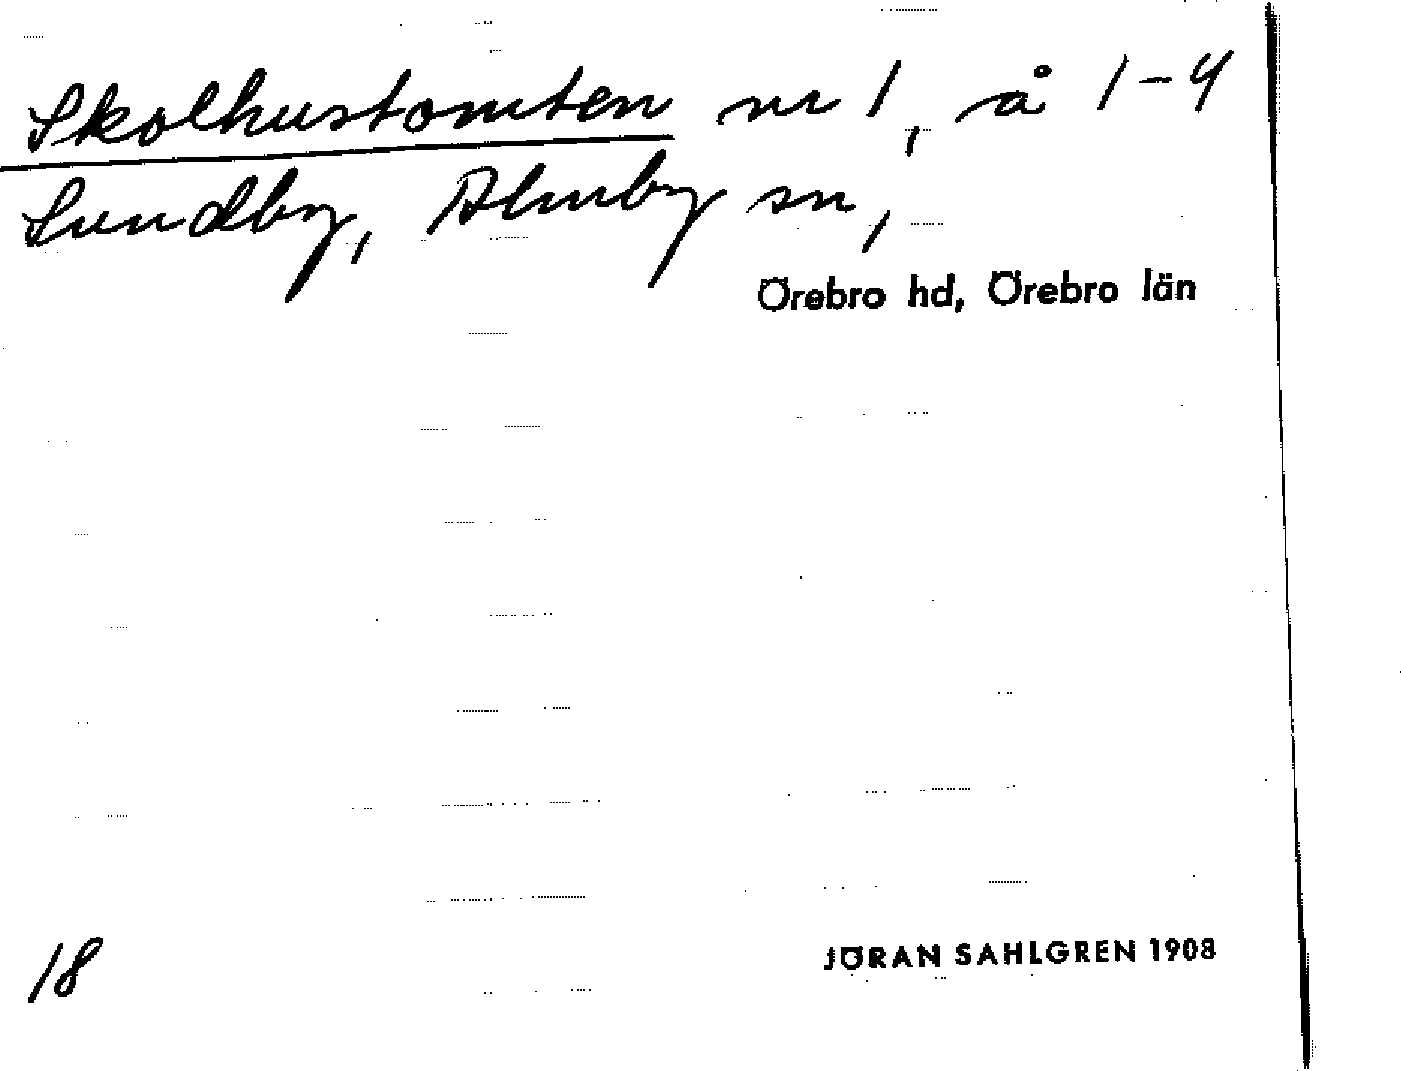 Skolhustomten nr 1, å 1-4
Sundby, Almby sn,
Örebro hd, Örebro län
18
JÖRAN SAHLGREN 1908